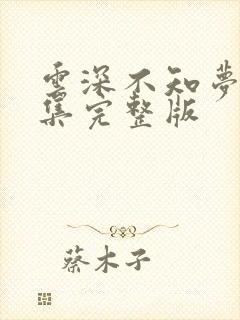 雲深不知夢
集完整版
蔡木子